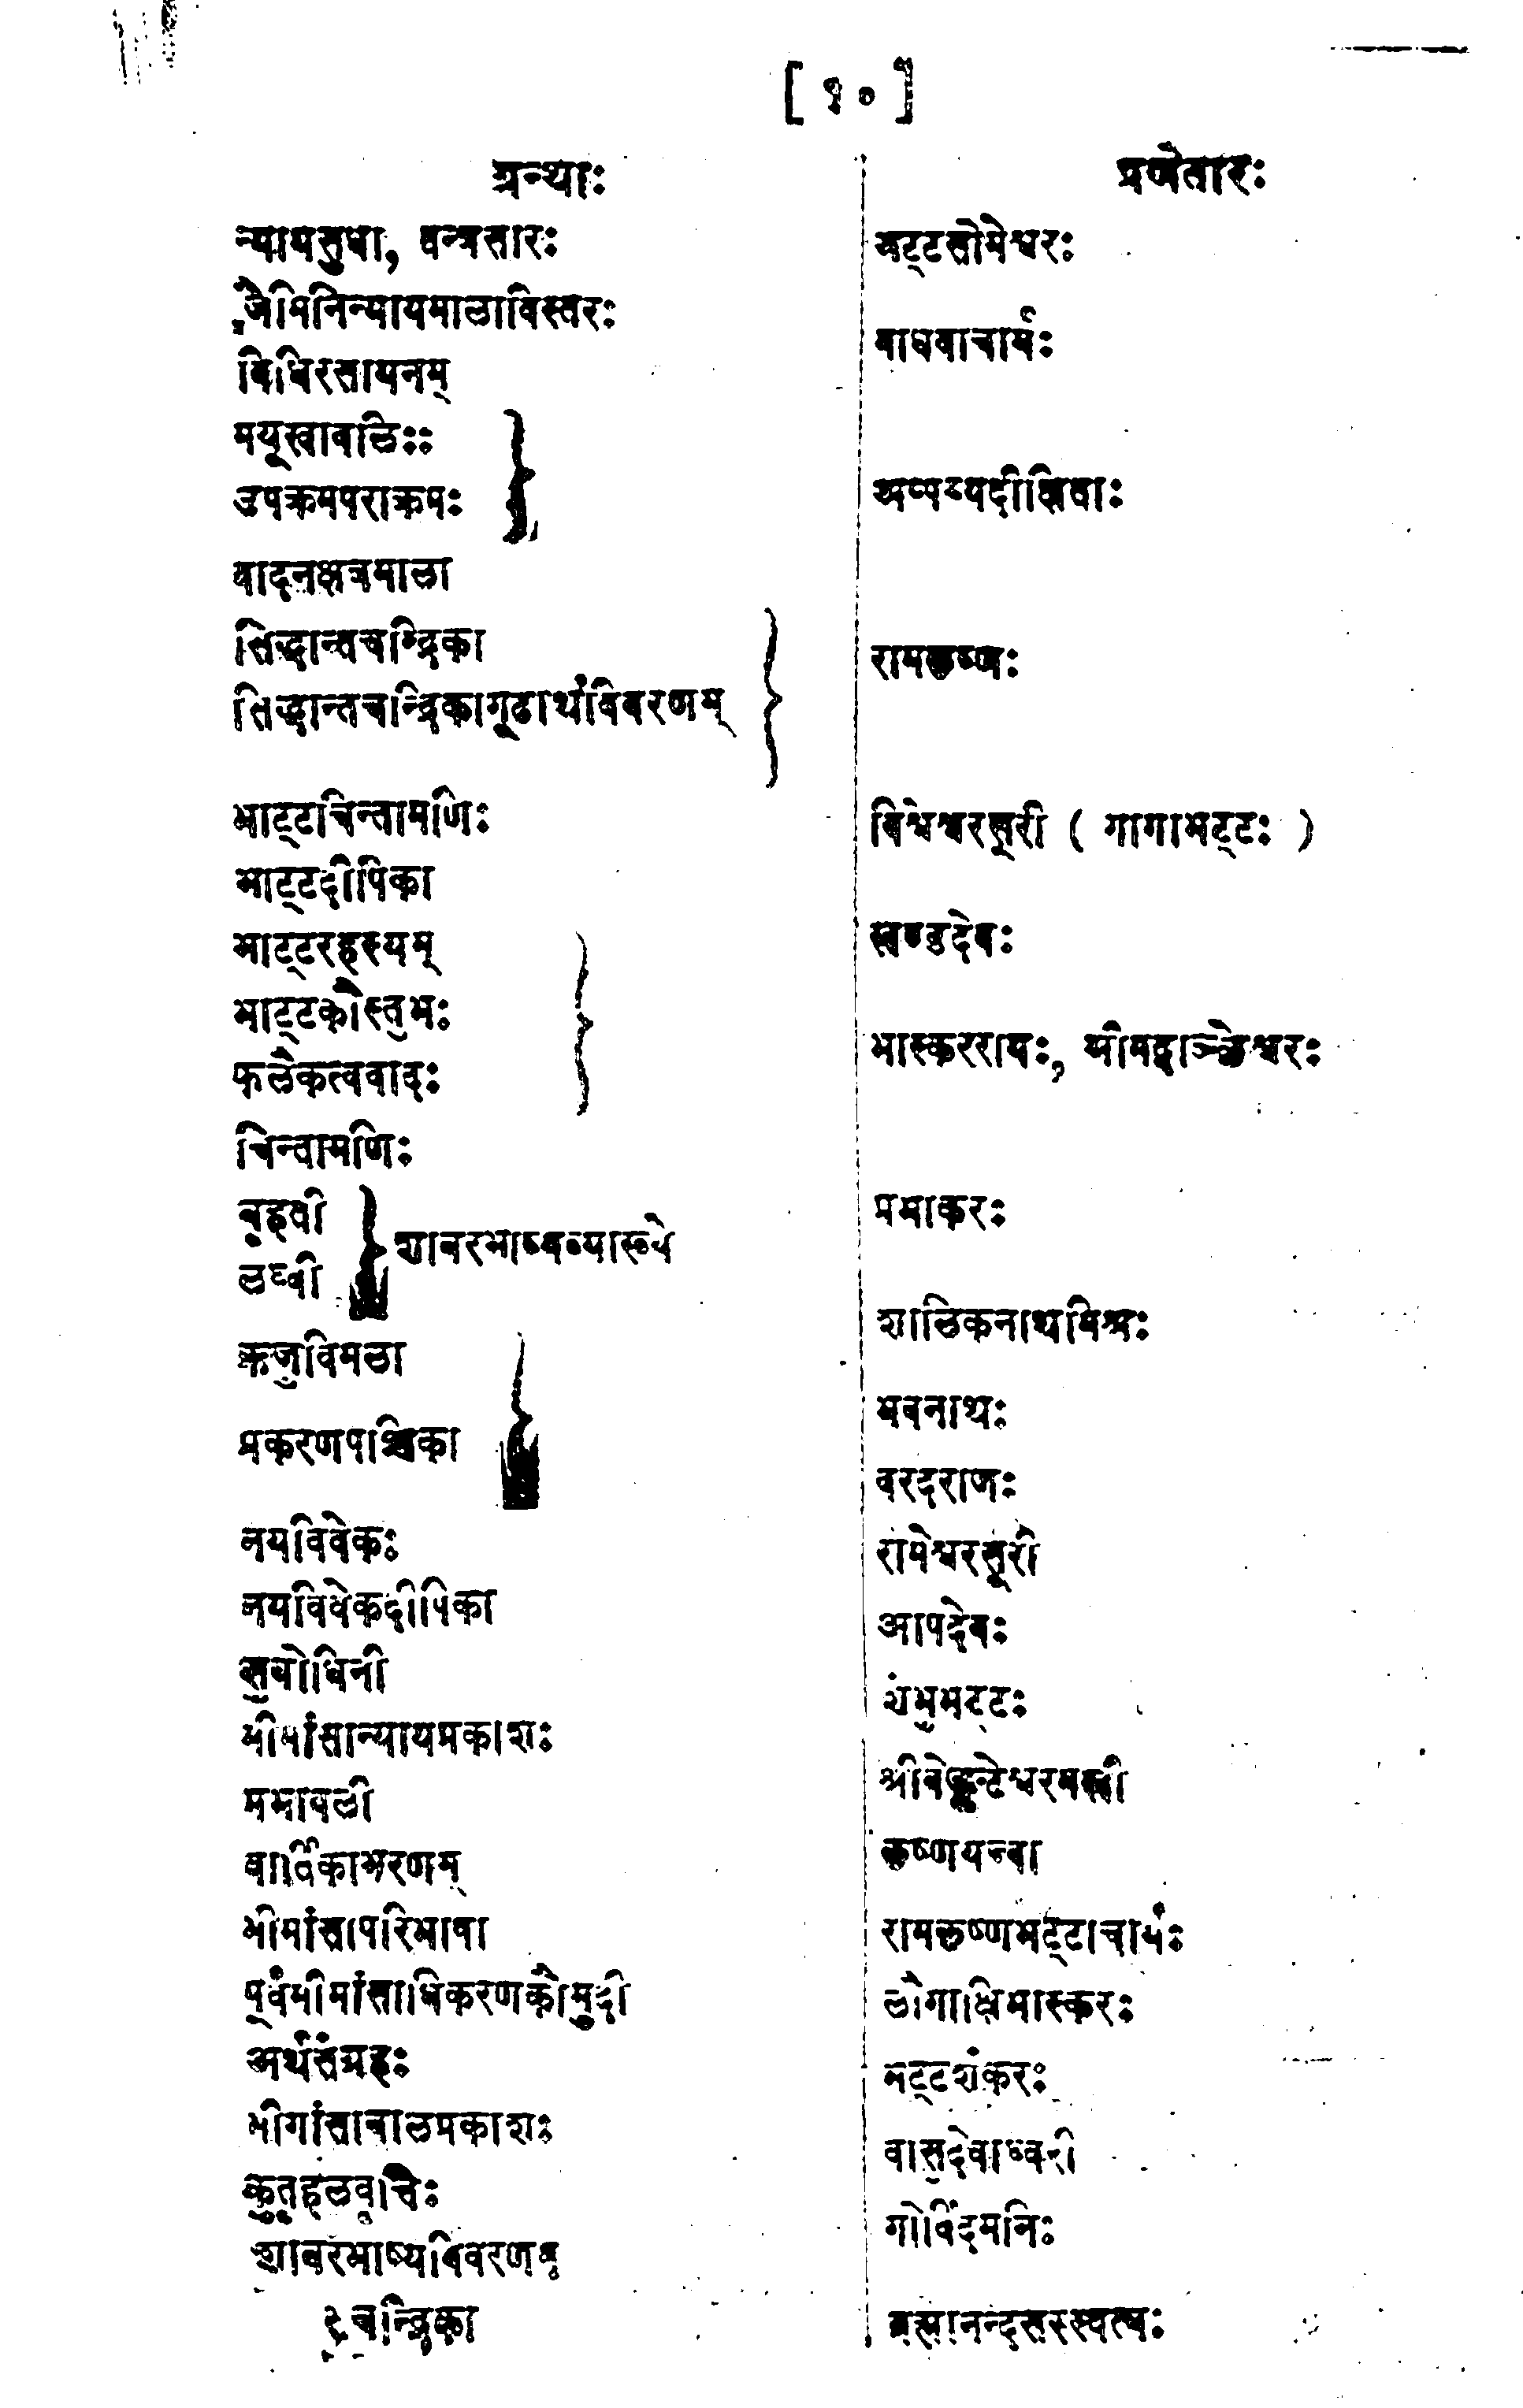 [ १० ]
ग्रन्थाः
न्यायसुधा, तन्त्रसारः
जैमिनिन्यायमालाविस्तरः
विधिरसायनम्
मयूखावलिःः
उपक्रमपराक्रमः
वादनक्षत्रमाला
सिद्धान्तचन्द्रिका
सिद्धान्तचन्द्रिकागूढार्थविवरणम्
भाट्टचिन्तामणिः
भाट्टदीपिका
भाट्टरहस्यम्
भाट्टकौस्तुभः
फलैकत्ववादः
चिन्तामणिः
बृहती
लघ्वी
शाबरभाष्यव्याख्ये
ऋजुविमला
प्रकरणपञ्चिका
नयविवेकः
नयविवेकदीपिका
सुबोधिनी
मीमांसान्यायप्रकाशः
प्रभावली
वार्तिकाभरणम्
मीमांसापरिभाषा
पूर्वमीमांसाधिकरणकौमुदी
अर्थसंग्रहः
मीमांसाबालप्रकाशः
कुतूहलवृत्तिः
शाबरभाष्यविवरणम्
चन्द्रिका
प्रणेतारः
भट्टसोमेश्वरः
माधवाचार्यः
अप्पय्यदीक्षिताः
रामकृष्णः
विश्वेश्वरसूरी ( गागाभट्टः )
खण्डदेवः
भास्कररायः, श्रीमद्वाञ्छेश्वरः
प्रभाकरः
शालिकनाथमिश्रः
भवनाथः
वरदराजः
रामेश्वरसूरी
आपदेवः
शंभुभट्टः
श्रीवेङ्कटेश्वरमखी
कृष्णयज्वा
रामकृष्णभट्टाचार्यः
लौगाक्षिभास्करः
भट्टशंकरः
वासुदेवाध्वरी
गोविंदमनिः
ब्रह्मानन्दसरस्वत्यः